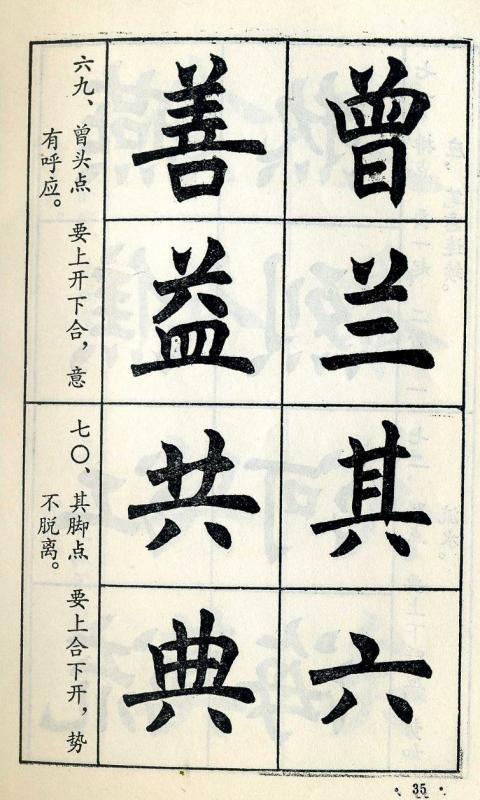 曾兰其六
善益共典
六九、曾头点 要上开下合，意
有呼应。
七〇、其脚点 要上合下开，势
不脱离。
35